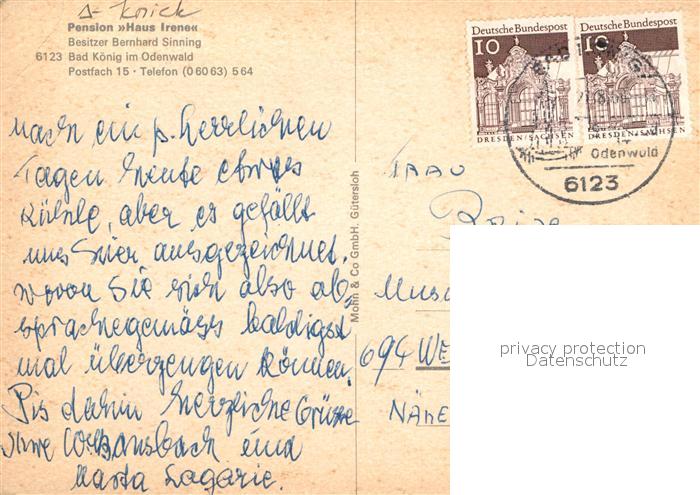 Pension »Haus Irene«
Besitzer Bernhard Sinning
6123 Bad König im Odenwald
Postfach 15 · Telefon (0 60 63) 5 64
nach ein p. herrlichen
Tagen heute etwas
Kühle, aber es gefällt
uns hier ausgezeichnet.
wovon Sie sich also ab-
sprachegemäss baldigst
mal überzeugen können.
Bis dahin herzliche Grüsse
Ihre
und
Marta
Mohn & Co GmbH. Gütersloh
Deutsche Bundespost
10
DRESDEN/SACHSEN
Deutsche Bundespost
10
DRESDEN/SACHSEN
Odenwald
6123
FRAU
694 WE
NÄHE
privacy protection
Datenschutz